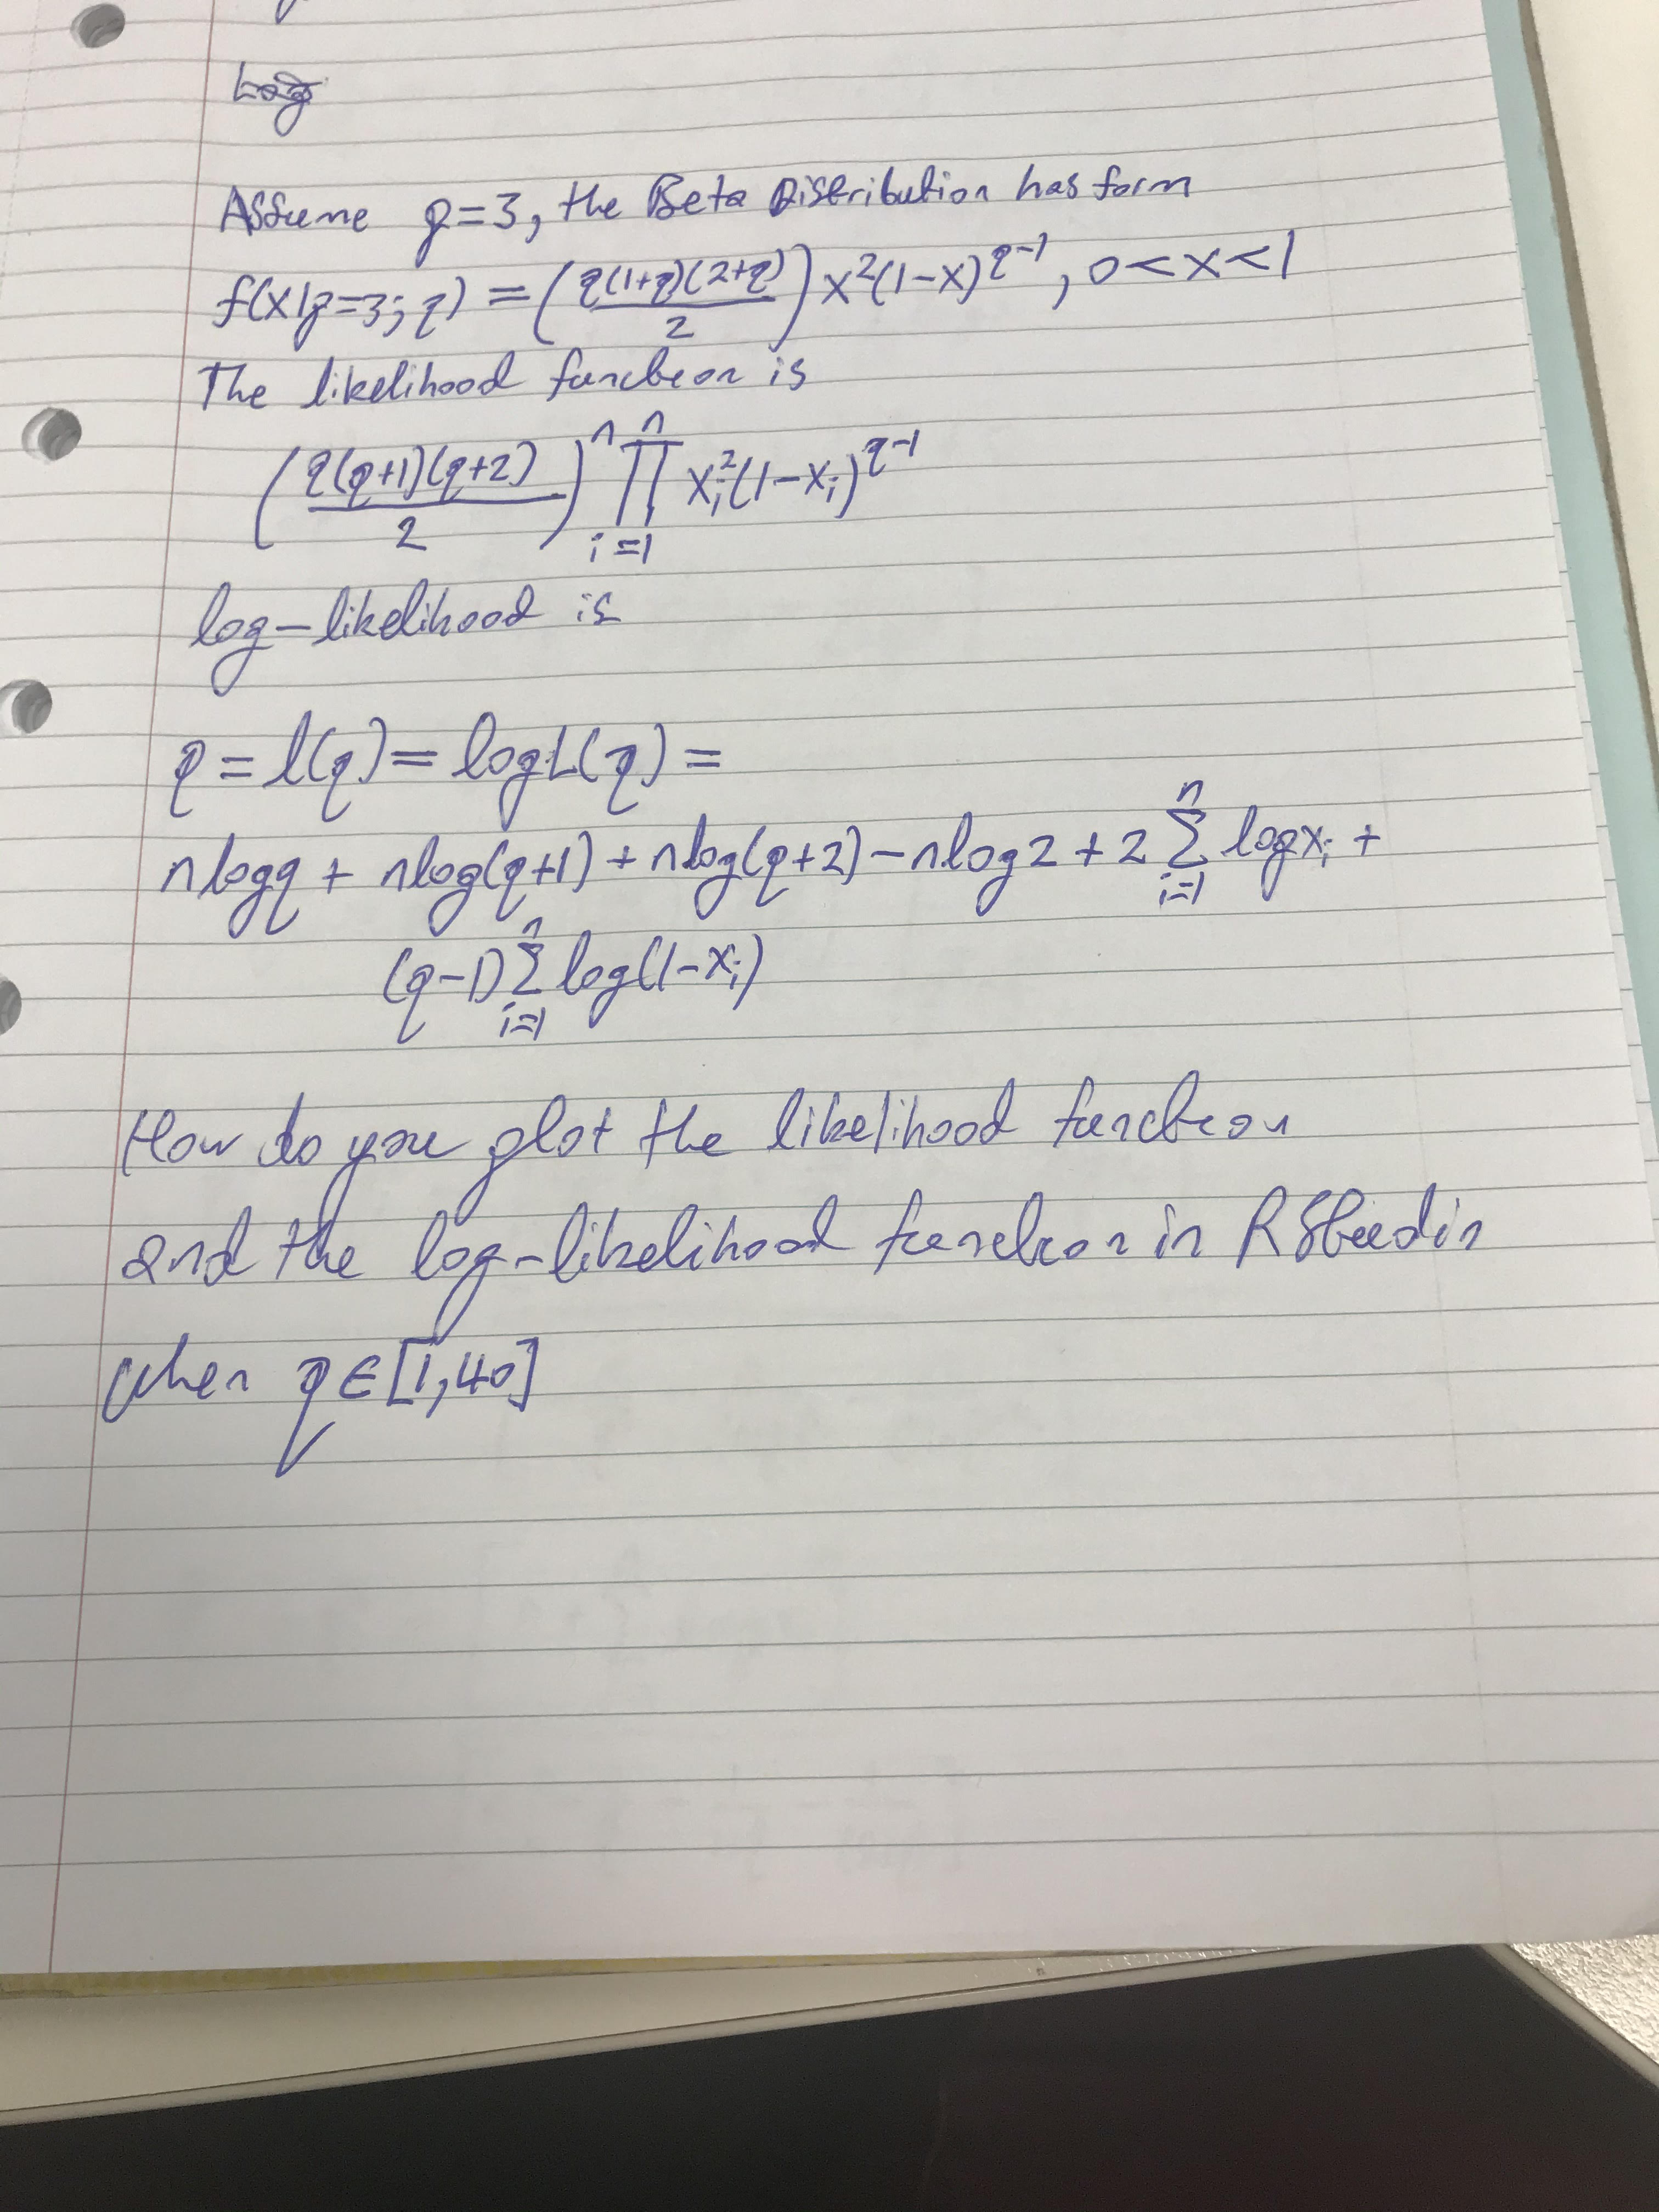 Log
Assume p=3, the Beta Distribution has form
f(x|p=3; q) = (q(1+q)(2+q)/2) x²(1-x)^{q-1}, 0<x<1
The likelihood function is
(q(q+1)(q+2)/2)^n ∏_{i=1}^{n} x_i²(1-x_i)^{q-1}
log-likelihood is
q = l(q) = log L(q) =
n log q + n log(q+1) + n log(q+2) - n log 2 + 2 ∑_{i=1}^{n} log x_i +
(q-1) ∑_{i=1}^{n} log(1-x_i)
How do you plot the likelihood function
and the log-likelihood function in RStudio
when q ∈ [1,40]